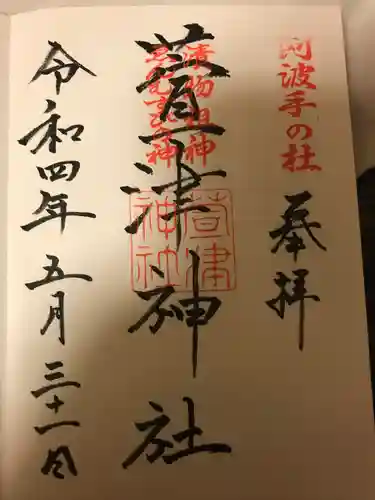 阿波手の杜
奉拝
漬物祖神
ゑんむすびの神
萱津神社
萱津神社
令和四年五月三十一日